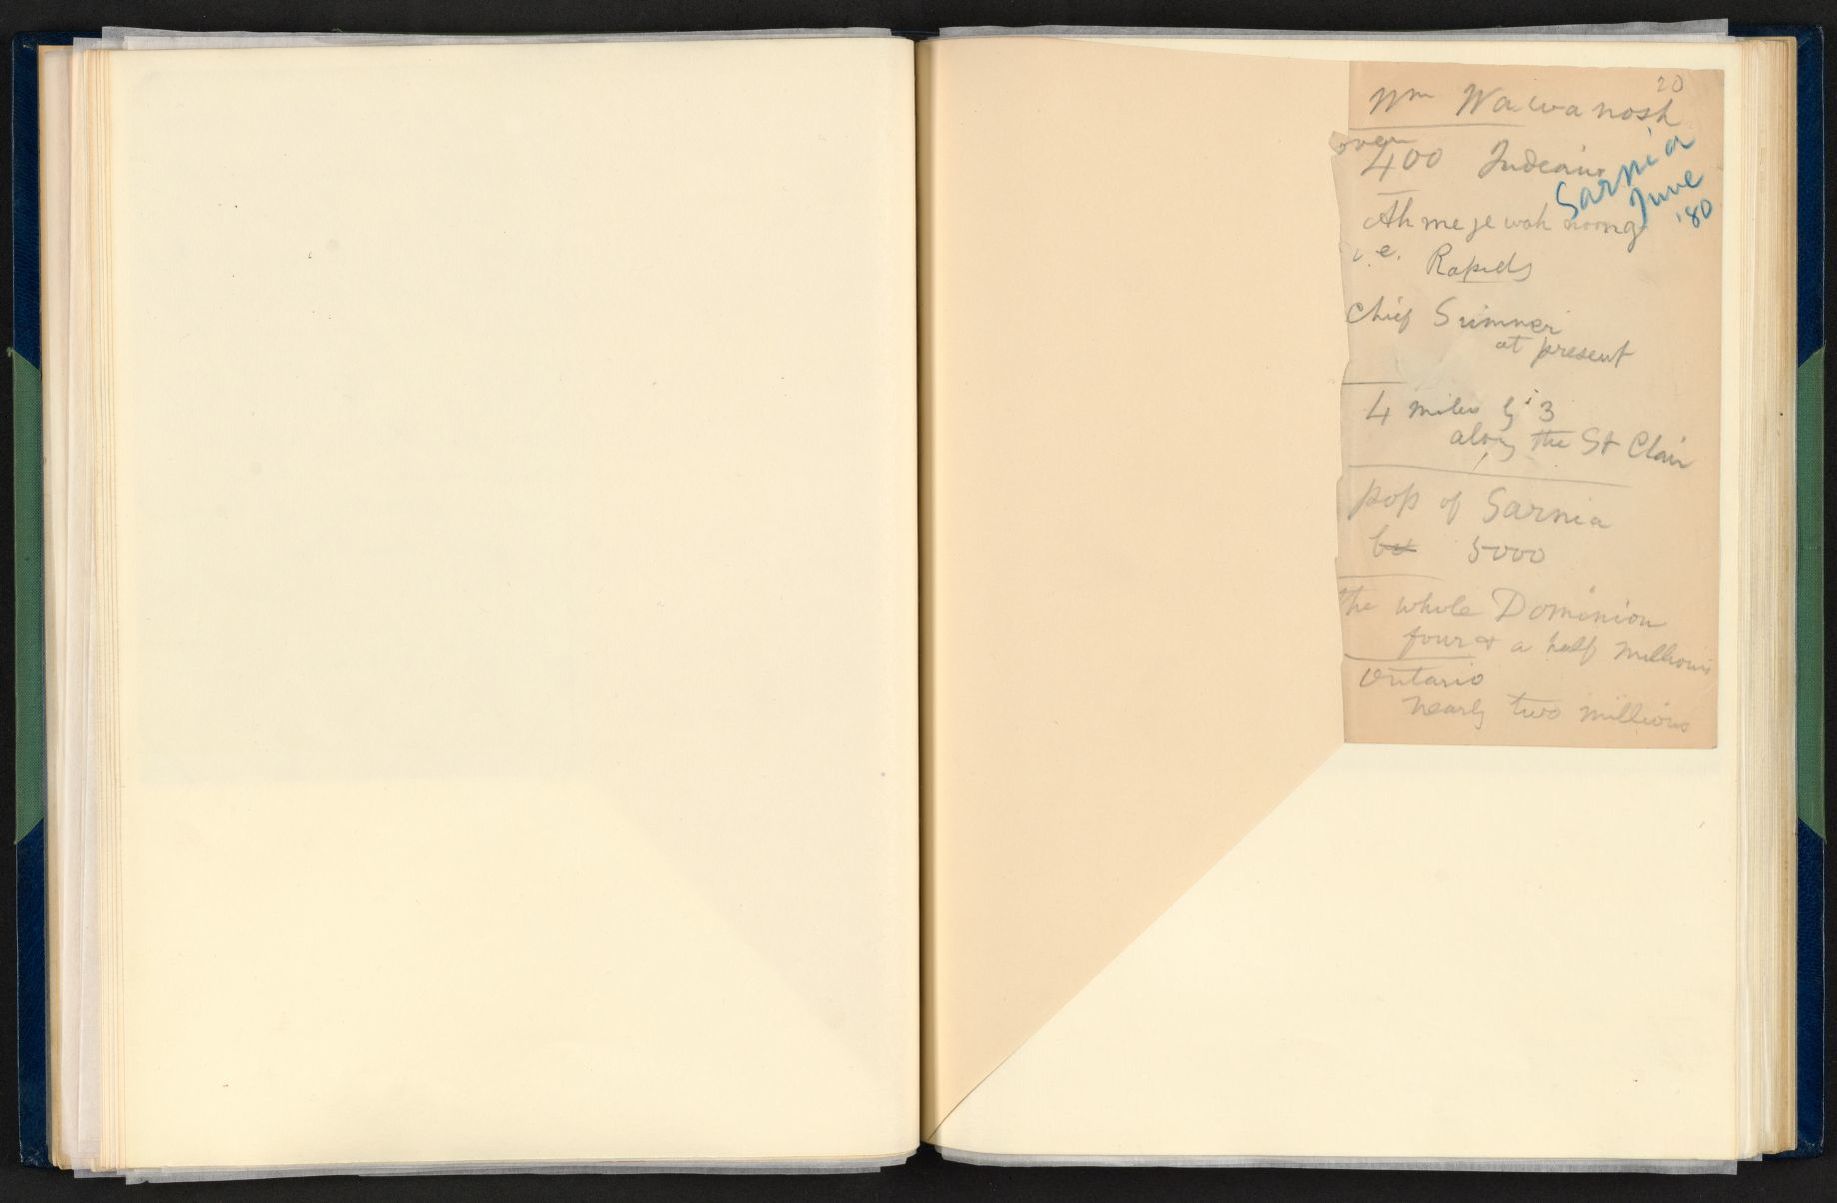 20
Wm Wawanosh
over
400 Indians
Sarnia
June
'80
Ah me je wah noong
i.e. Rapids
Chief Summer
at present
4 miles by 3
along the St Clair
pop of Sarnia
5000
the whole Dominion
four & a half millions
Ontario
nearly two millions